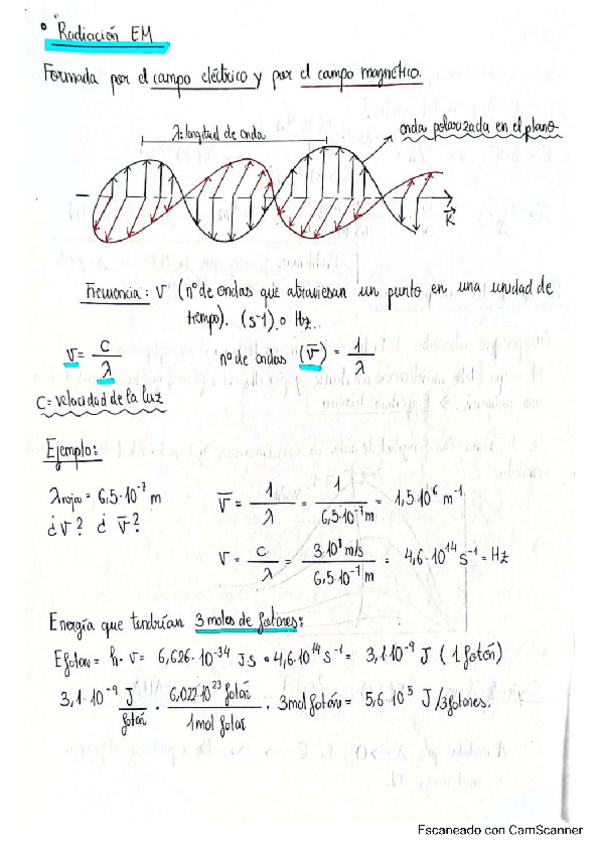 • Radiación EM
Formada por el campo eléctrico y por el campo magnético.
λ: longitud de onda
onda polarizada en el plano
K
Frecuencia: ν (nº de ondas que atraviesan un punto en una unidad de
tiempo). (s-1) o Hz.
ν = c/λ nº de ondas (ν̅) = 1/λ
C = velocidad de la luz
Ejemplo:
λroja = 6,5·10⁻⁷ m ν̅ = 1/λ = 1/6,5·10⁻⁷m = 1,5·10⁶ m⁻¹
¿ν? ¿ν̅?
ν = c/λ = 3·10⁸ m/s / 6,5·10⁻⁷ m = 4,6·10¹⁴ s⁻¹ = Hz
Energía que tendrían 3 moles de fotones:
Efoton = h·ν = 6,626·10⁻³⁴ J·s · 4,6·10¹⁴ s⁻¹ = 3,1·10⁻⁹ J (1 fotón)
3,1·10⁻⁹ J/fotón · 6,022·10²³ fotón/1 mol fotón · 3mol fotón = 5,6·10⁵ J/3fotones.
Escaneado con CamScanner